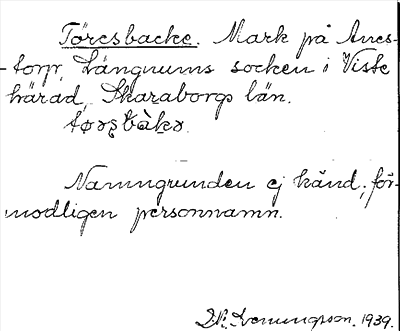 Töresbacke. Mark på Anes-
torp, Längnums socken i Viste
härad, Skaraborgs län.
Namngrunden ej känd, för-
modligen personnamn.
1939.